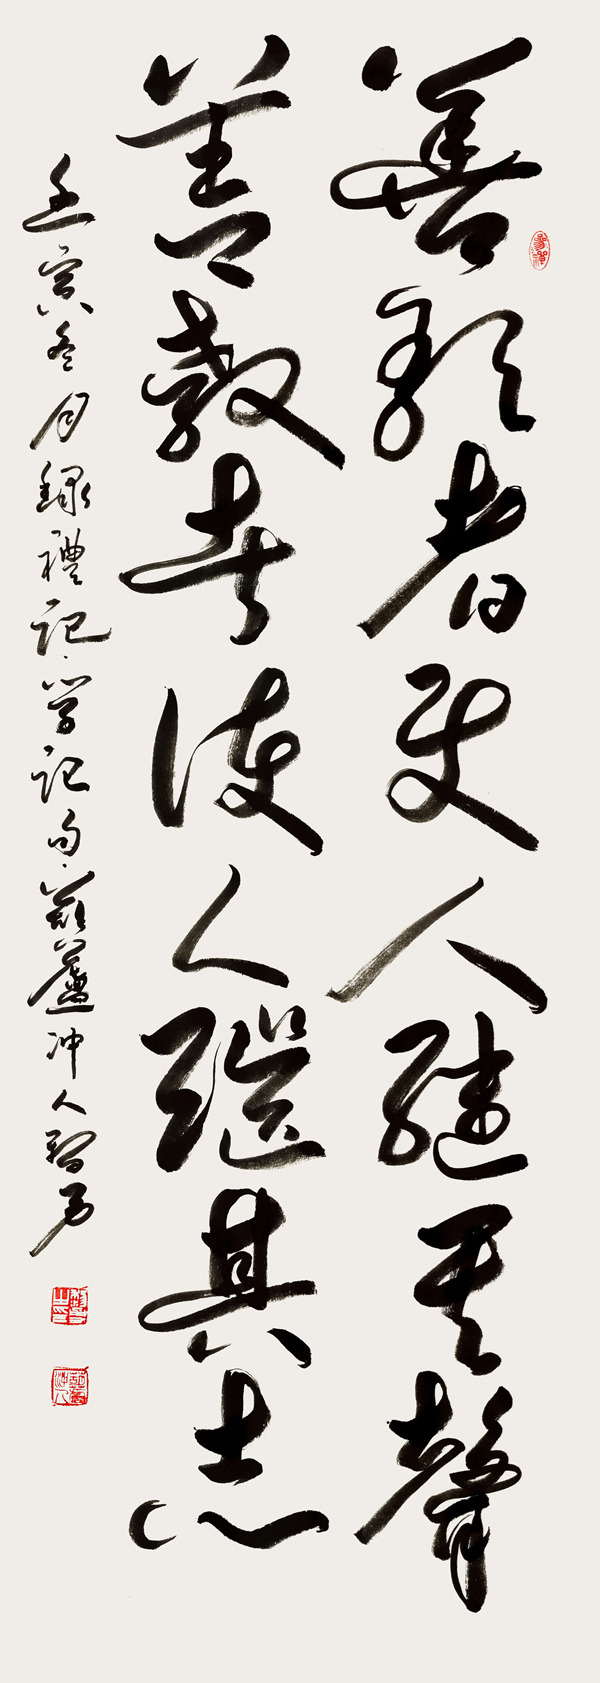 善歌者使人繼其聲
善教者使人繼其志
壬寅冬月錄禮記·學記句·葫蘆沖人智勇